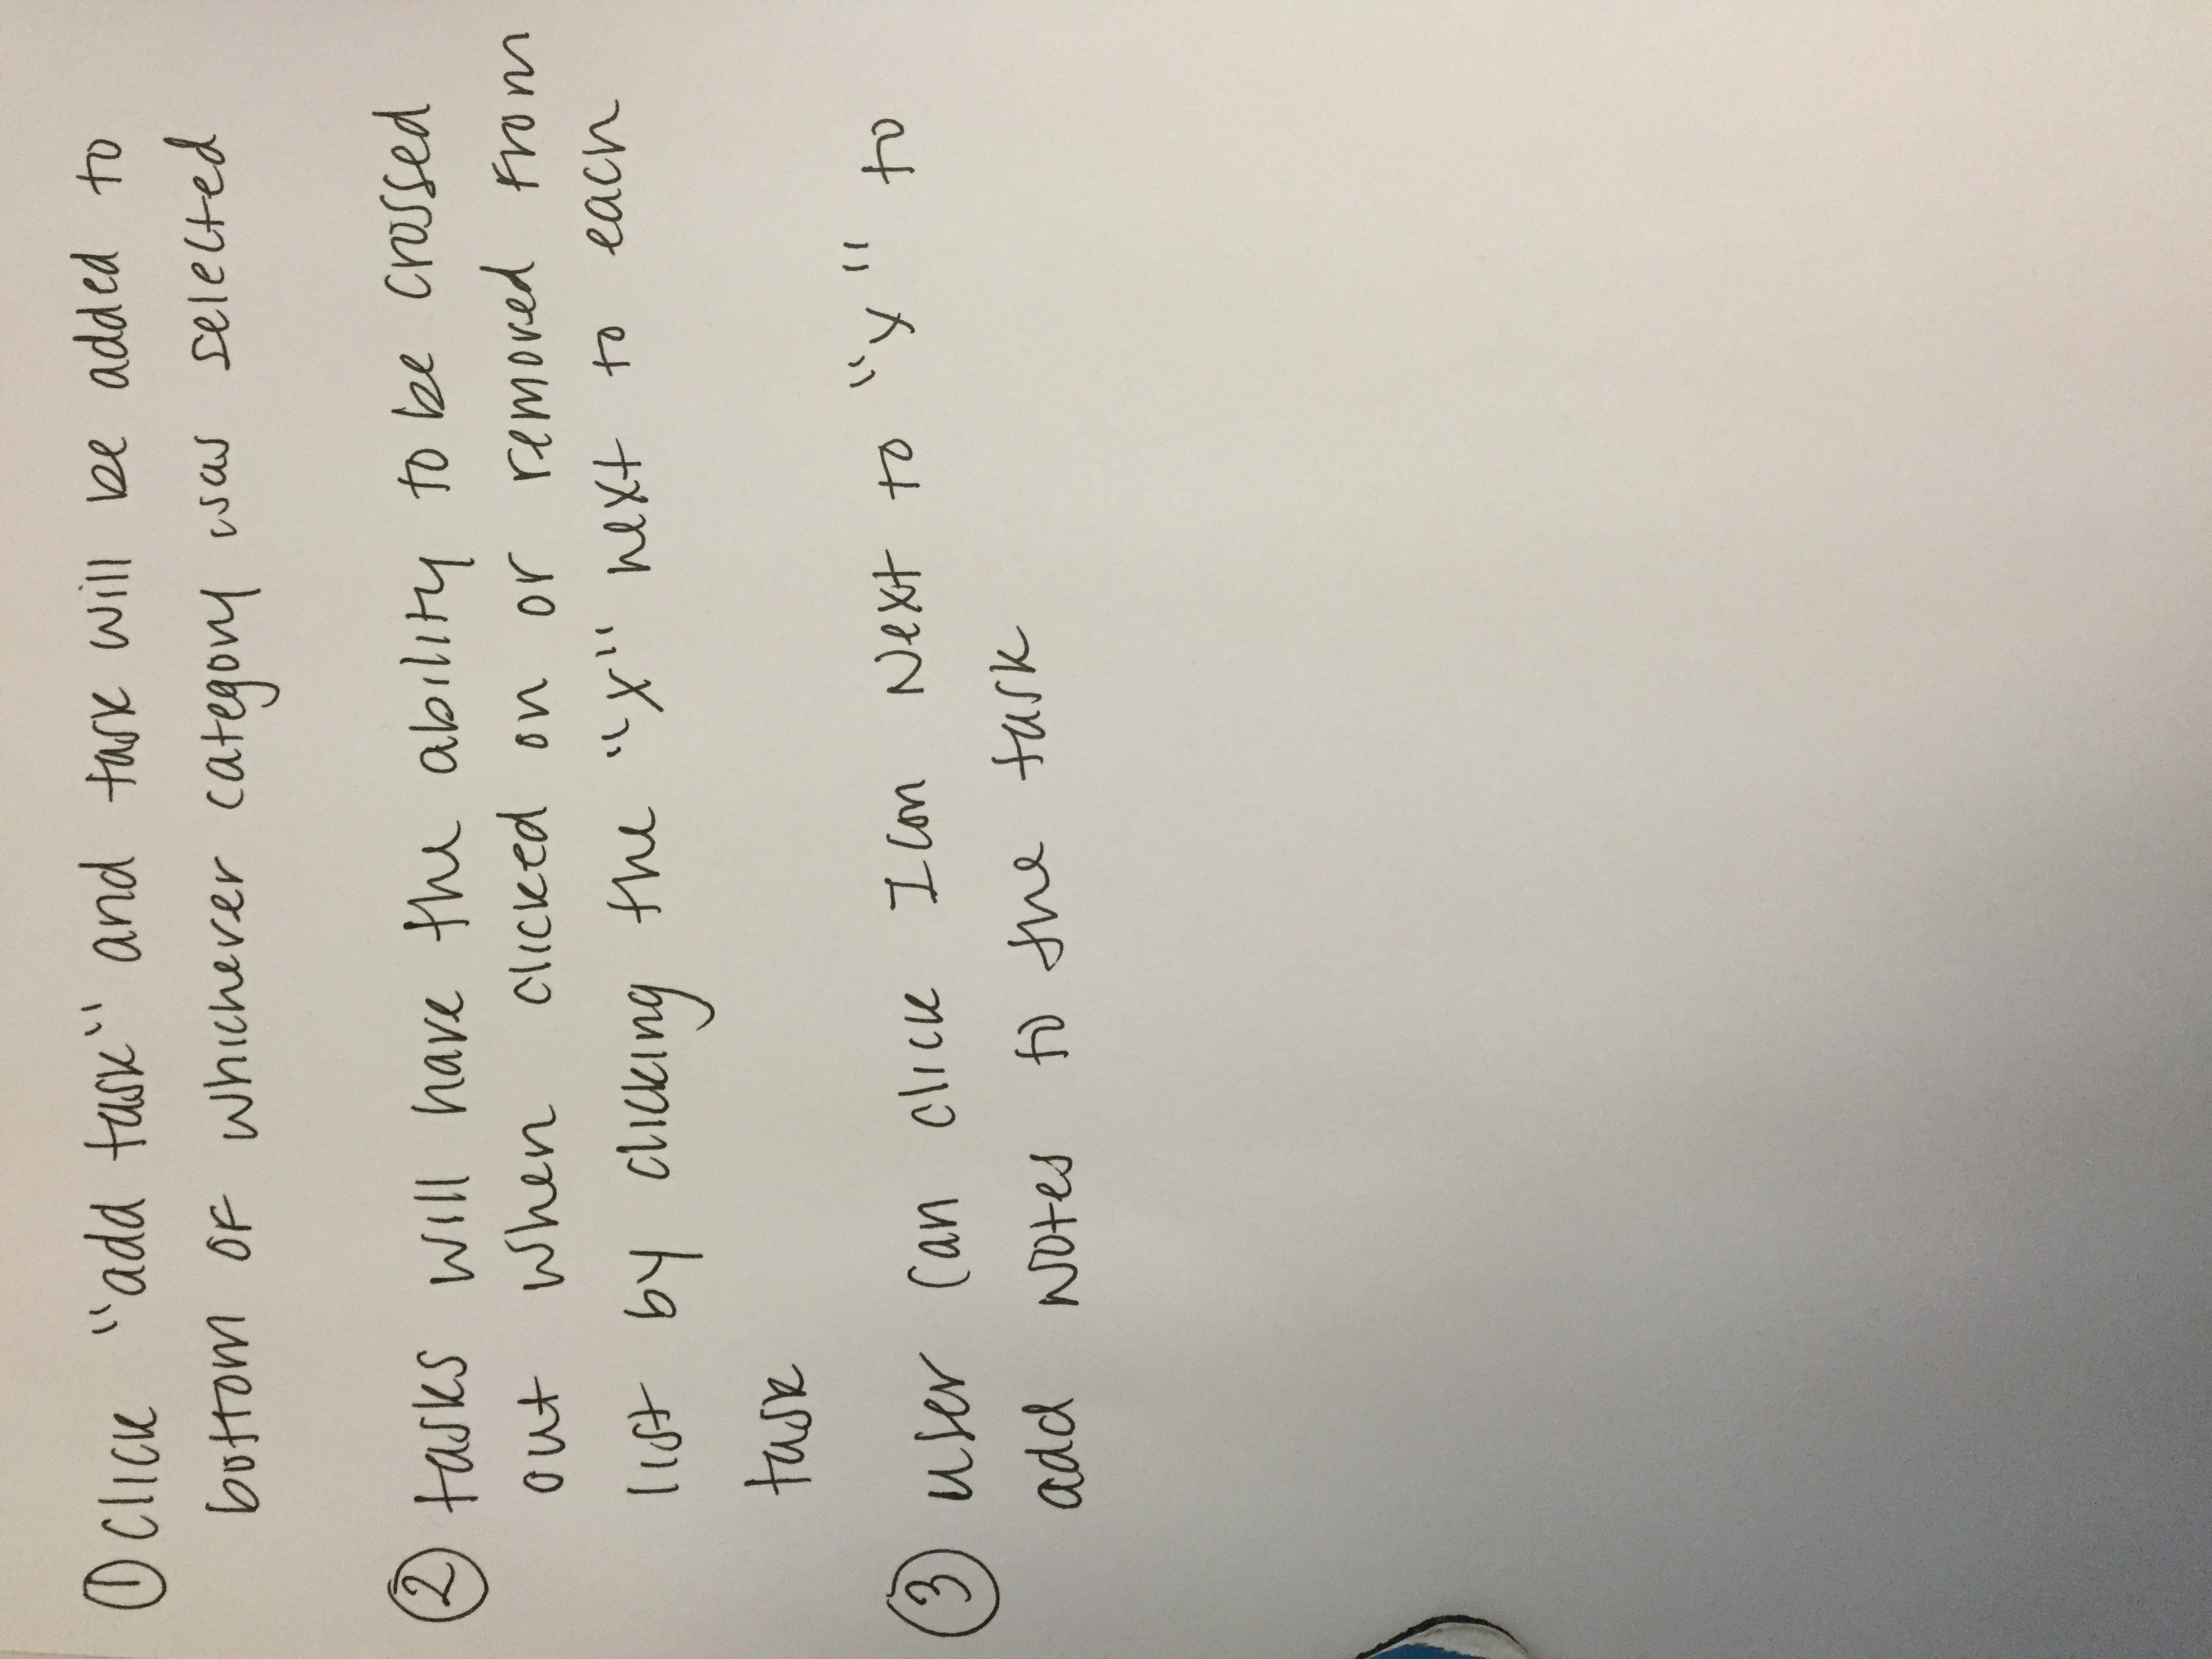 ① Click "add task" and task will be added to
bottom of whichever category was selected
② tasks will have the ability to be crossed
out when clicked on or removed from
list by clicking the "x" next to each
task
③ user can click Icon Next to "x" to
add Notes to the task